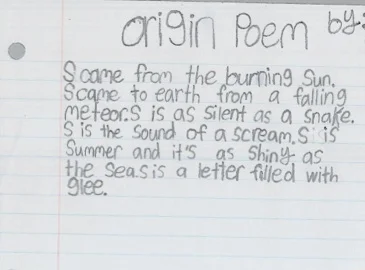 Origin Poem by:
S came from the burning Sun.
S came to earth from a falling
meteor.S is as silent as a snake.
S is the sound of a scream.S is
Summer and it's as Shiny as
the sea.S is a letter filled with
glee.